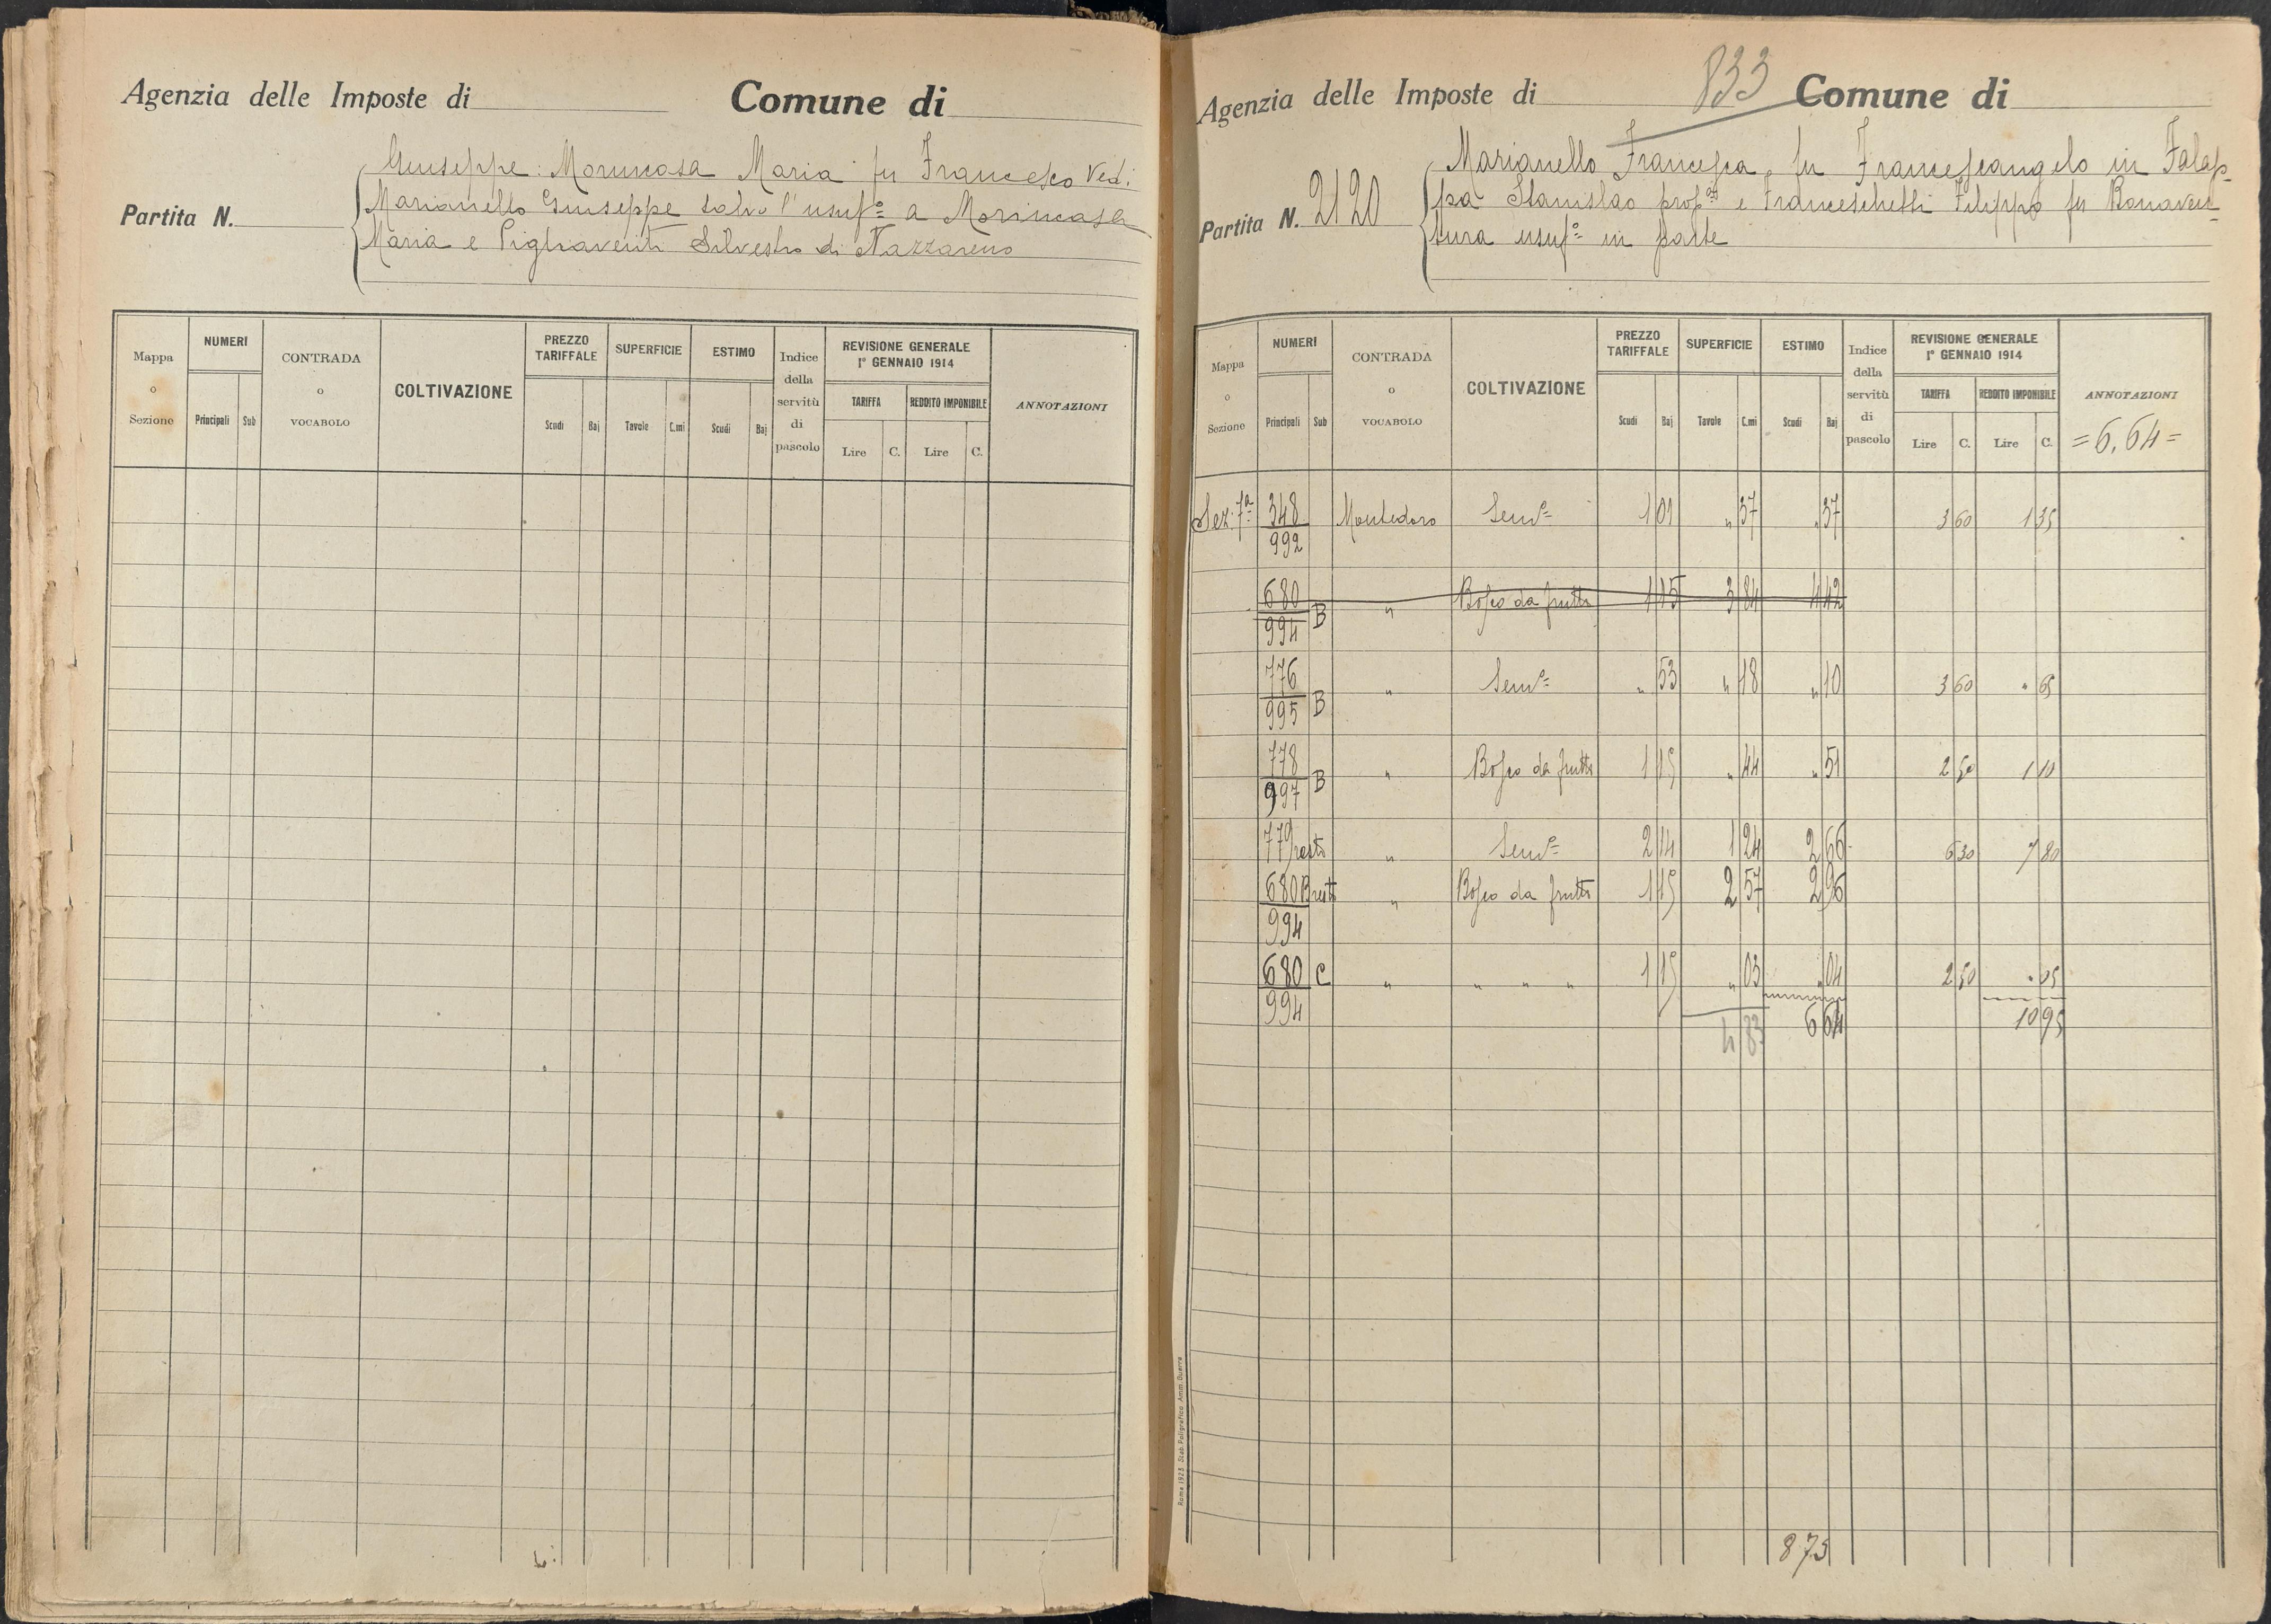 Agenzia delle Imposte di Comune di
Giuseppe: Morincasa Maria fu Francesco Ved:
Partita N. Marianello Giuseppe salvo l'usuf.º a Morincasa
Maria e Pigliaventi Silvestro di Nazzareno
Mappa o Sezione NUMERI Principali Sub CONTRADA o VOCABOLO COLTIVAZIONE PREZZO TARIFFALE Scudi Baj SUPERFICIE Tavole C.mi ESTIMO Scudi Baj Indice della servitù di pascolo REVISIONE GENERALE 1º GENNAIO 1914 TARIFFA Lire C. REDDITO IMPONIBILE Lire C. ANNOTAZIONI
833
Agenzia delle Imposte di Comune di
Marianello Francesca, fu Francescangelo in Falap-
Partita N. 2120 pa Stanislao prop. e Franceschetti Filippo fu Bonaven-
tura usuf.º in parte
Mappa o Sezione NUMERI Principali Sub CONTRADA o VOCABOLO COLTIVAZIONE PREZZO TARIFFALE Scudi Baj SUPERFICIE Tavole C.mi ESTIMO Scudi Baj Indice della servitù di pascolo REVISIONE GENERALE 1º GENNAIO 1914 TARIFFA Lire C. REDDITO IMPONIBILE Lire C. ANNOTAZIONI
=6,64=
Sez. 7ª 348 Montedoro Sem.º 1 01 " 37 " 37 3 60 1 35
992
680 B " Bosco da frutto 1 15 3 84 4 42
994
776 B " Sem.º " 53 " 18 " 10 3 60 " 65
995
778 B " Bosco da frutto 1 15 " 44 " 51 2 50 1 10
997
779 resto " Sem.º 2 14 1 24 2 66 6 30 7 80
680 B resto " Bosco da frutto 1 15 2 57 2 96
994
680 C " " " " 1 15 " 03 " 04 2 50 " 05
994
4 83 6 64 10 95
873
Roma 1923 Stab. Poligrafico Amm. Guerra